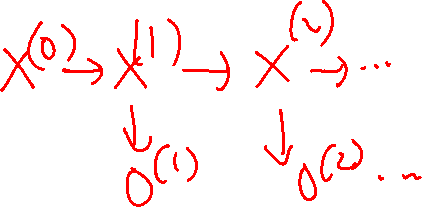 X^(0) → X^(1) → X^(2) → ...
↓ ↓
O^(1) O^(2) ...